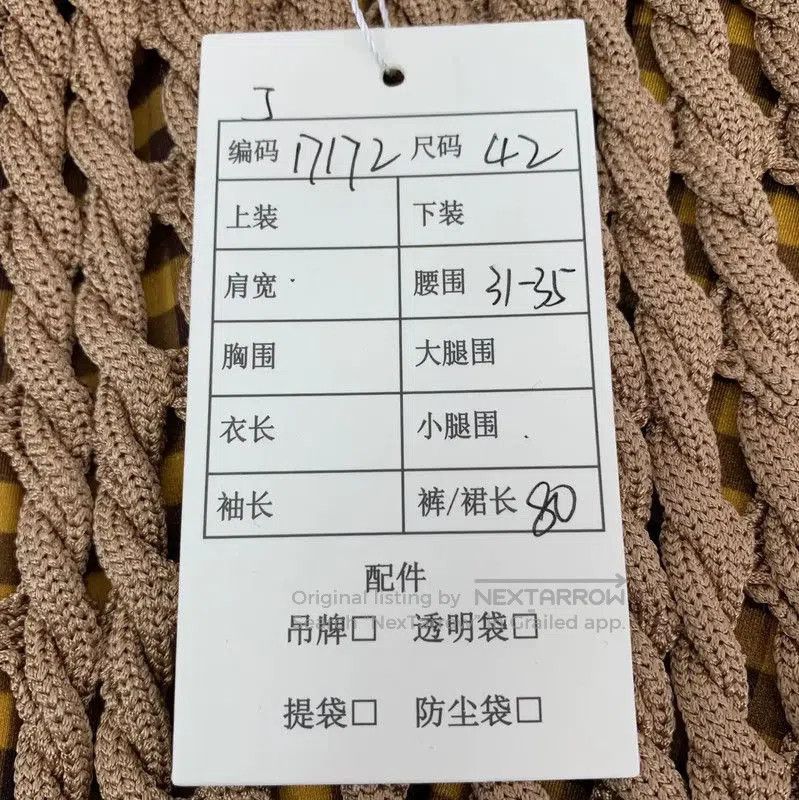 J
编码 17172 尺码 42
上装 下装
肩宽 腰围 31-35
胸围 大腿围
衣长 小腿围
袖长 裤/裙长 80
配件
Original listing by NEXTARROW
吊牌□ 透明袋□
Grailed app.
提袋□ 防尘袋□